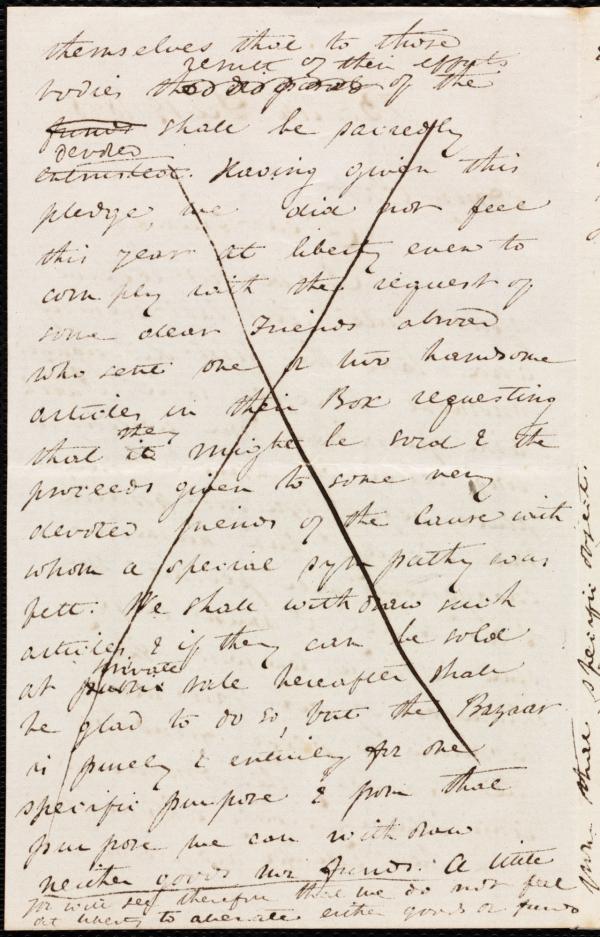 themselves that to those
result of their efforts
bodies the disposal of the
funds shall be sacredly
devoted
entrusted. Having given this
pledge, we did not feel
this year at liberty even to
comply with the request of
some dear Friends abroad
who sent one or two handsome
articles in their Box requesting
they
that it might be sold & the
proceeds given to some very
devoted friends of the Cause with
whom a special sympathy was
felt. We shall withdraw such
articles & if they can be sold
private
at public sale hereafter shall
be glad to do so, but the Bazaar
is purely & entirely for one
specific purpose & from that
purpose we can withdraw
neither goods nor funds. A little
You will see therefore that we do not feel
at liberty to alienate either goods or funds
from that specific object.